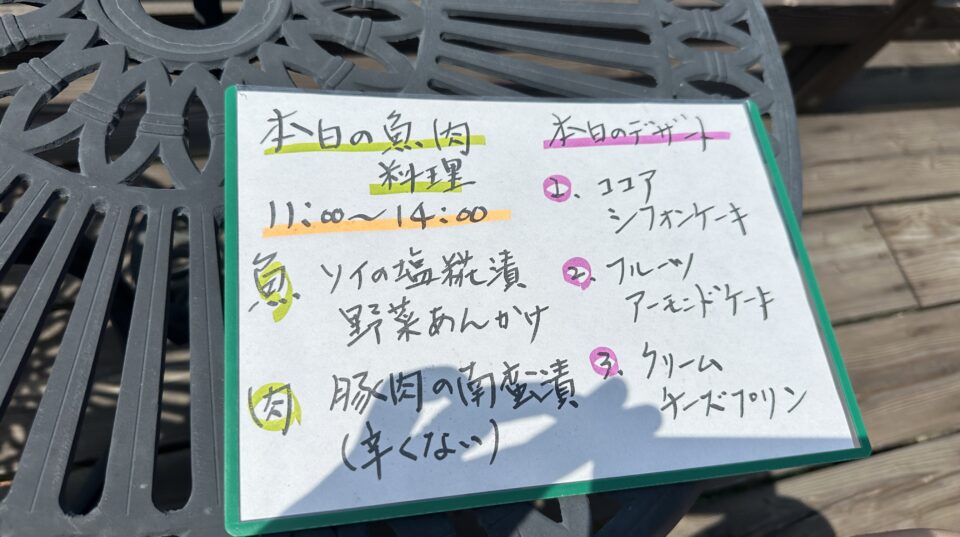 本日の魚肉
料理
11:00〜14:00
魚 ソイの塩糀漬
野菜あんかけ
肉 豚肉の南蛮漬
(辛くない)
本日のデザート
1. ココア
シフォンケーキ
2. フルーツ
アーモンドケーキ
3. クリーム
チーズプリン